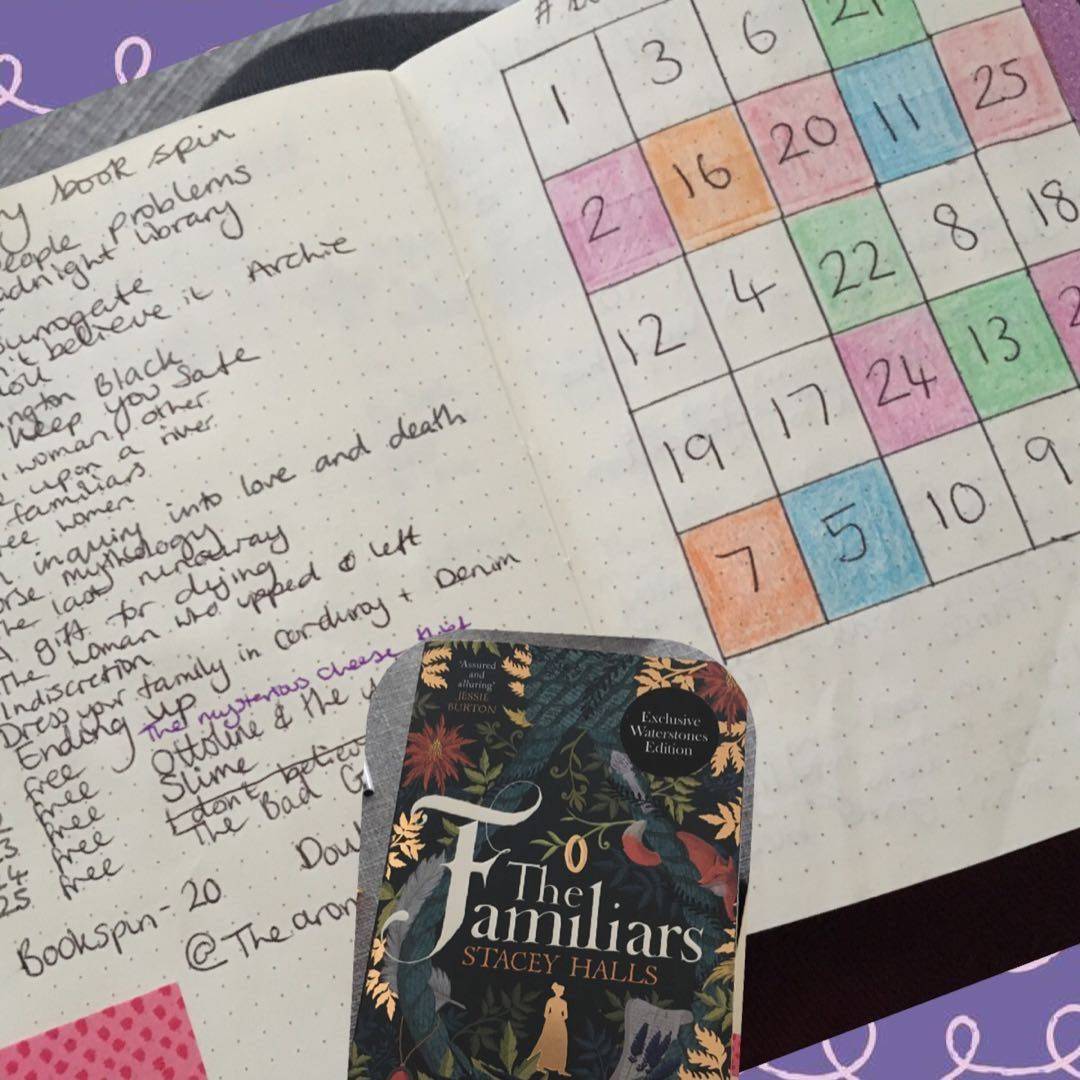 book spin
problems
Library
believe it, Archie
Black
keep you safe
woman, other
upon a river
familiars
women
inquiry into love and death
mythology
last runaway
A gift for dying
The woman who upped & left
Indiscretion
Dress your family in corduroy + Denim
Ending up
free The mysterious cheese thief
free Ottoline & the
free Slime
free I dont believe
free The Bad
25 free
Bookspin - 20
@The
1 3 6 21
2 16 20 11 25
12 4 22 8 18
19 17 24 13
7 5 10 9
'Assured
and
alluring'
JESSIE
BURTON
Exclusive
Waterstones
Edition
The
Familiars
STACEY HALLS